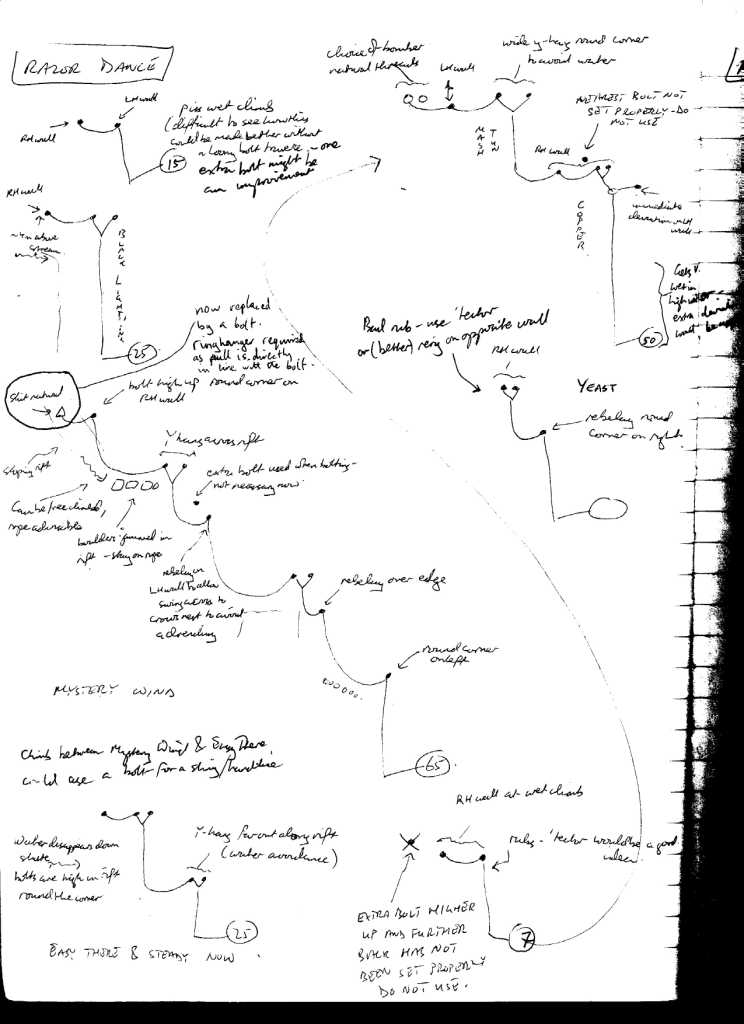 RAZOR DANCE
LH wall
RH wall
Piss wet climb
(difficult to see how this
could be made better without
a bolt traverse - one
extra bolt might be
an improvement
15
RH wall
above
stream
BLACK LIGHTNING
25
now replaced
by a bolt.
ringhanger required
as pull is directly
in line with the bolt.
natural
bolt high up round corner on
RH wall
Y hang across rift
sloping rift
extra bolt used when bolting -
not necessary now.
Can be free climbed,
rope advisable
boulders jammed in
rift - stay on rope
rebelay on
LH wall to allow
swing across to
crows nest to avoid
a drenching
rebelay over edge
round corner
on left
65
MYSTERY WIND
Climb between Mystery Wind & Easy There
could use a bolt for a sling/handline
Water disappears down
bolts are high in rift
round the corner
Y-hang far out along rift
(water avoidance)
25
EASY THERE & STEADY NOW.
choice of bomber
natural threads
LH wall
wide y-hang round corner
to avoid water
MASH
TUN
RH wall
NEAREST BOLT NOT
SET PROPERLY - DO
NOT USE
immediate
deviation
wall
COPPER
Gets v.
wet in
high water
extra
50
Bad rub - use 'tector
or (better) rerig on opposite wall
RH wall
YEAST
rebelay round
corner on right
RH wall at wet climb
rubs - 'tector would be a good
idea
EXTRA BOLT HIGHER
UP AND FURTHER
BACK HAS NOT
BEEN SET PROPERLY
DO NOT USE.
7